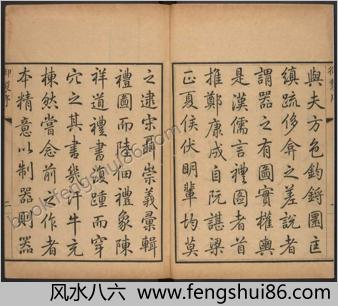 與夫方色鈞鋝圜匡
縝疏侈弇之差說者
謂器之有圖實權輿
是漢儒言禮圖者首
推鄭康成自阮諶梁
正夏侯伏明輩均莫
之逮宋聶崇義彙輯
禮圖而陸佃禮象陳
祥道禮書復踵而穿
穴之其書幾汗牛充
棟然嘗念前之作者
本精意以制器則器
御製序
二
book.fengshui86.com
风水八六 www.fengshui86.com